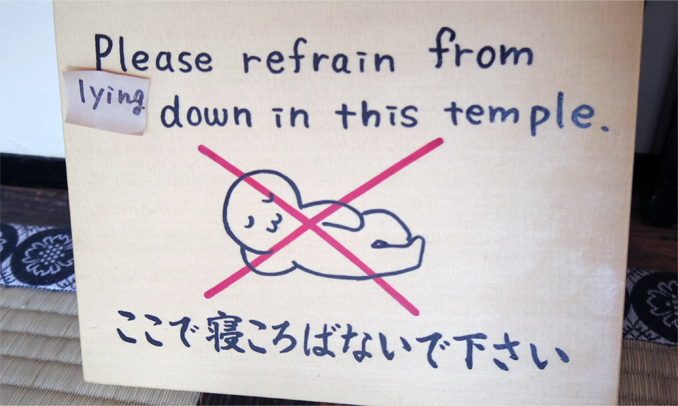 Please refrain from
lying down in this temple.
ここで寝ころばないで下さい